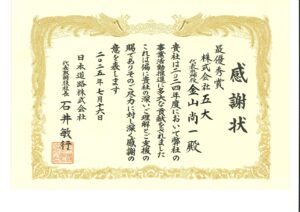 感謝状
最優秀賞
株式会社 五大
代表取締役 金山尚一 殿
貴社は二〇二四年度において弊社の
事業活動推進に多大な貢献をされました
これは偏に貴社の深いご理解とご支援の
賜でありそのご尽力に対し深く感謝の
意を表します
二〇二五年 七月十六日
日本道路株式会社
代表取締役社長 石井敏行